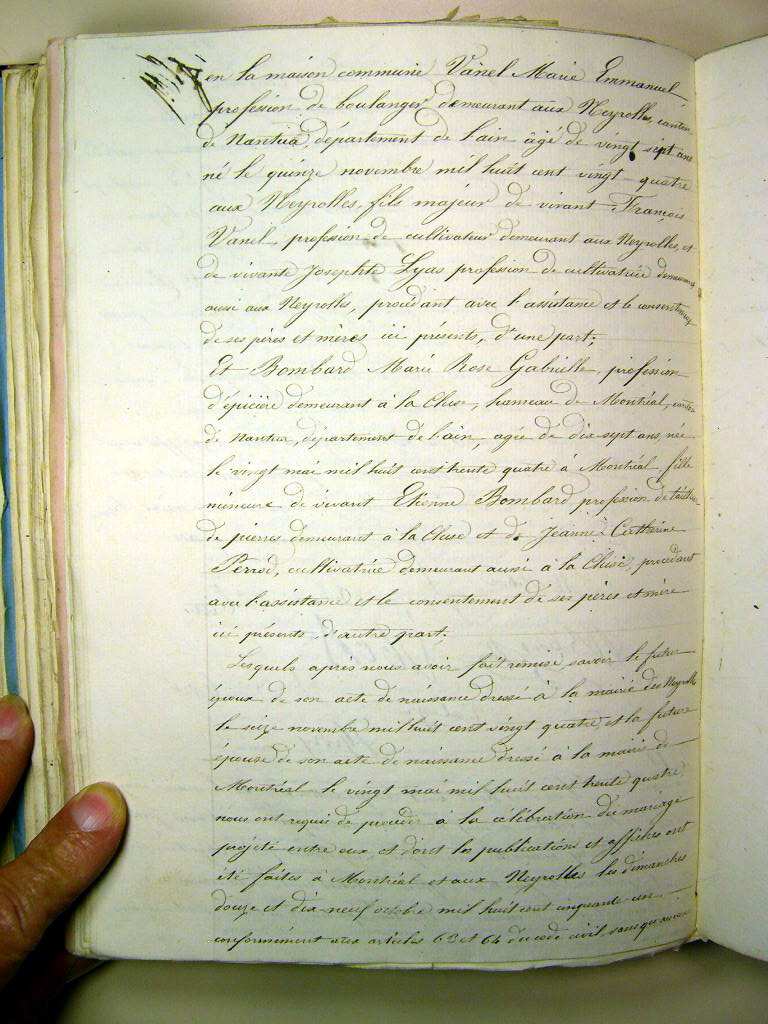 en la maison commune Vanel Marie Emmanuel
profession de boulanger demeurant aux Neyrolles, canton
de Nantua, département de l'ain âgé de vingt sept ans
né le quinze novembre mil huit cent vingt quatre
aux Neyrolles, fils majeur de vivant François
Vanel, profession de cultivateur demeurant aux Neyrolles, et
de vivante Josephte Lyus profession de cultivatrice demeurant
aussi aux Neyrolles, procédant avec l'assistance et le consentement
de ses pères et mères ici présents, d'une part;
Et Bombard Marie Rose Gabrielle, profession
d'épicière demeurant à la Cluse, hameau de Montréal, canton
de Nantua, département de l'ain, agée de dix sept ans, née
le vingt mai mil huit cent trente quatre à Montréal, fille
mineure de vivant Etienne Bombard profession de tailleur
de pierres demeurant à la Cluse et de Jeanne Catherine
Perrod, cultivatrice demeurant aussi à la Cluse, procédant
avec l'assistance et le consentement de ses pères et mère
ici présents, d'autre part.
Lesquels après nous avoir fait remise, savoir le futur
époux de son acte de naissance dressé à la mairie des Neyrolles
le seize novembre mil huit cent vingt quatre, et la future
épouse de son acte de naissance dressé à la mairie de
Montréal le vingt mai mil huit cent trente quatre
nous ont requis de procéder à la célébration du mariage
projeté entre eux et dont les publications et affiches ont
été faites à Montréal et aux Neyrolles les dimanches
douze et dix neuf octobre mil huit cent cinquante un
conformément aux articles 63 et 64 du code civil, sans qu'aucune